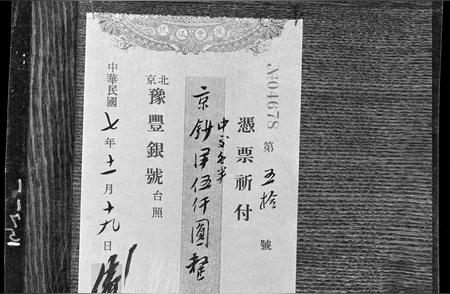 №04678
第五拾號
憑票祈付
中交各半
京鈔洋伍仟圓整
北京
豫豐銀號台照
中華民國七年十一月十九日